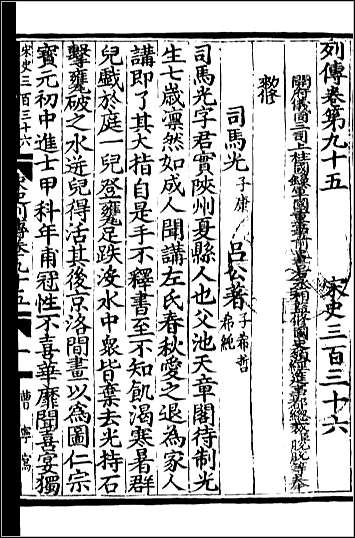 列傳卷第九十五　宋史三百三十六
開府儀同三司上柱國錄軍國重事前中書右丞相監修國史領經筵事都總裁脫脫等奉
勑修
司馬光子康　呂公著子希哲希純
司馬光字君實陜州夏縣人也父池天章閣待制光
生七歲凛然如成人聞講左氏春秋愛之退為家人
講即了其大指自是手不釋書至不知飢渴寒暑群
兒戲於庭一兒登甕足跌沒水中衆皆棄去光持石
擊甕破之水迸兒得活其後京洛間畫以為圖仁宗
寶元初中進士甲科年甫冠性不喜華靡聞喜宴獨
宋史三百三十六
列傳卷九十五
一
曹寧寫